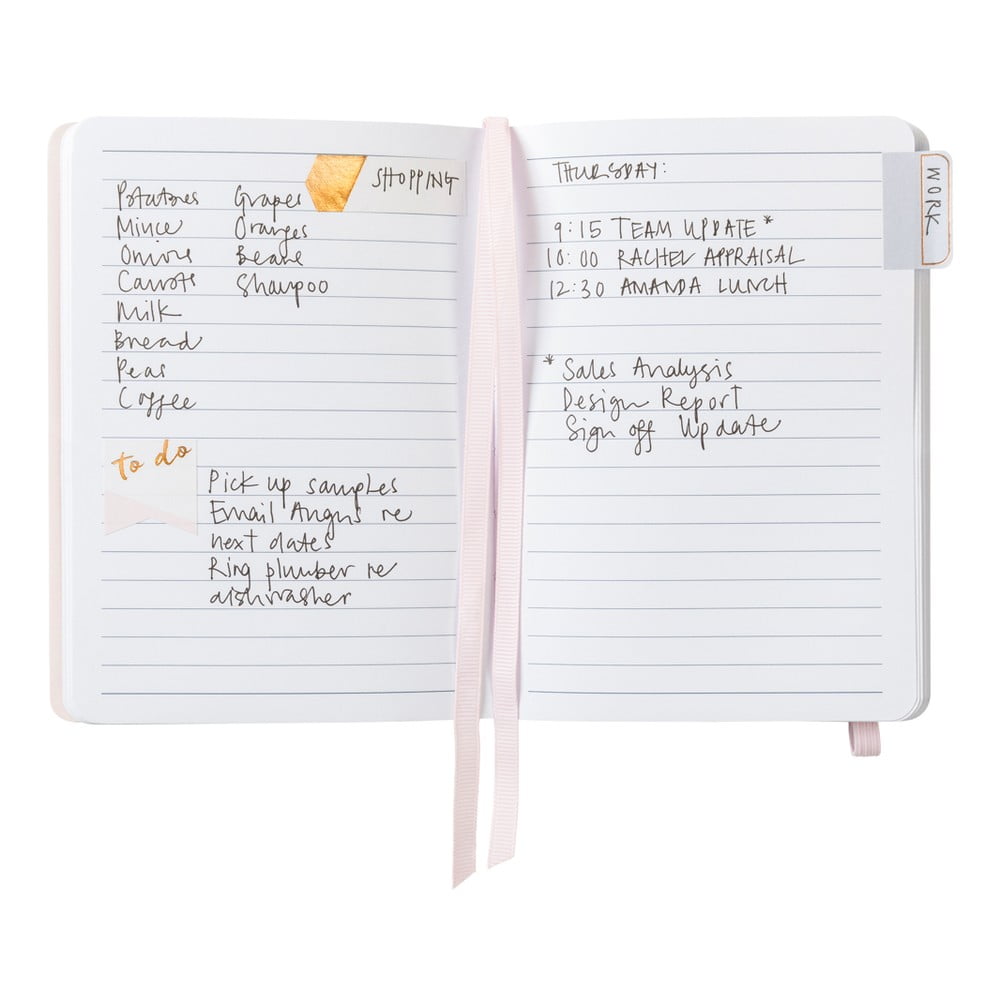 SHOPPING
Potatoes
Mince
Onions
Carrots
Milk
Bread
Peas
Coffee
Grapes
Oranges
Beans
Shampoo
to do
Pick up samples
Email Angus re
next dates
Ring plumber re
dishwasher
THURSDAY:
9:15 TEAM UPDATE*
10:00 RACHEL APPRAISAL
12:30 AMANDA LUNCH
* Sales Analysis
Design Report
Sign off Update
WORK